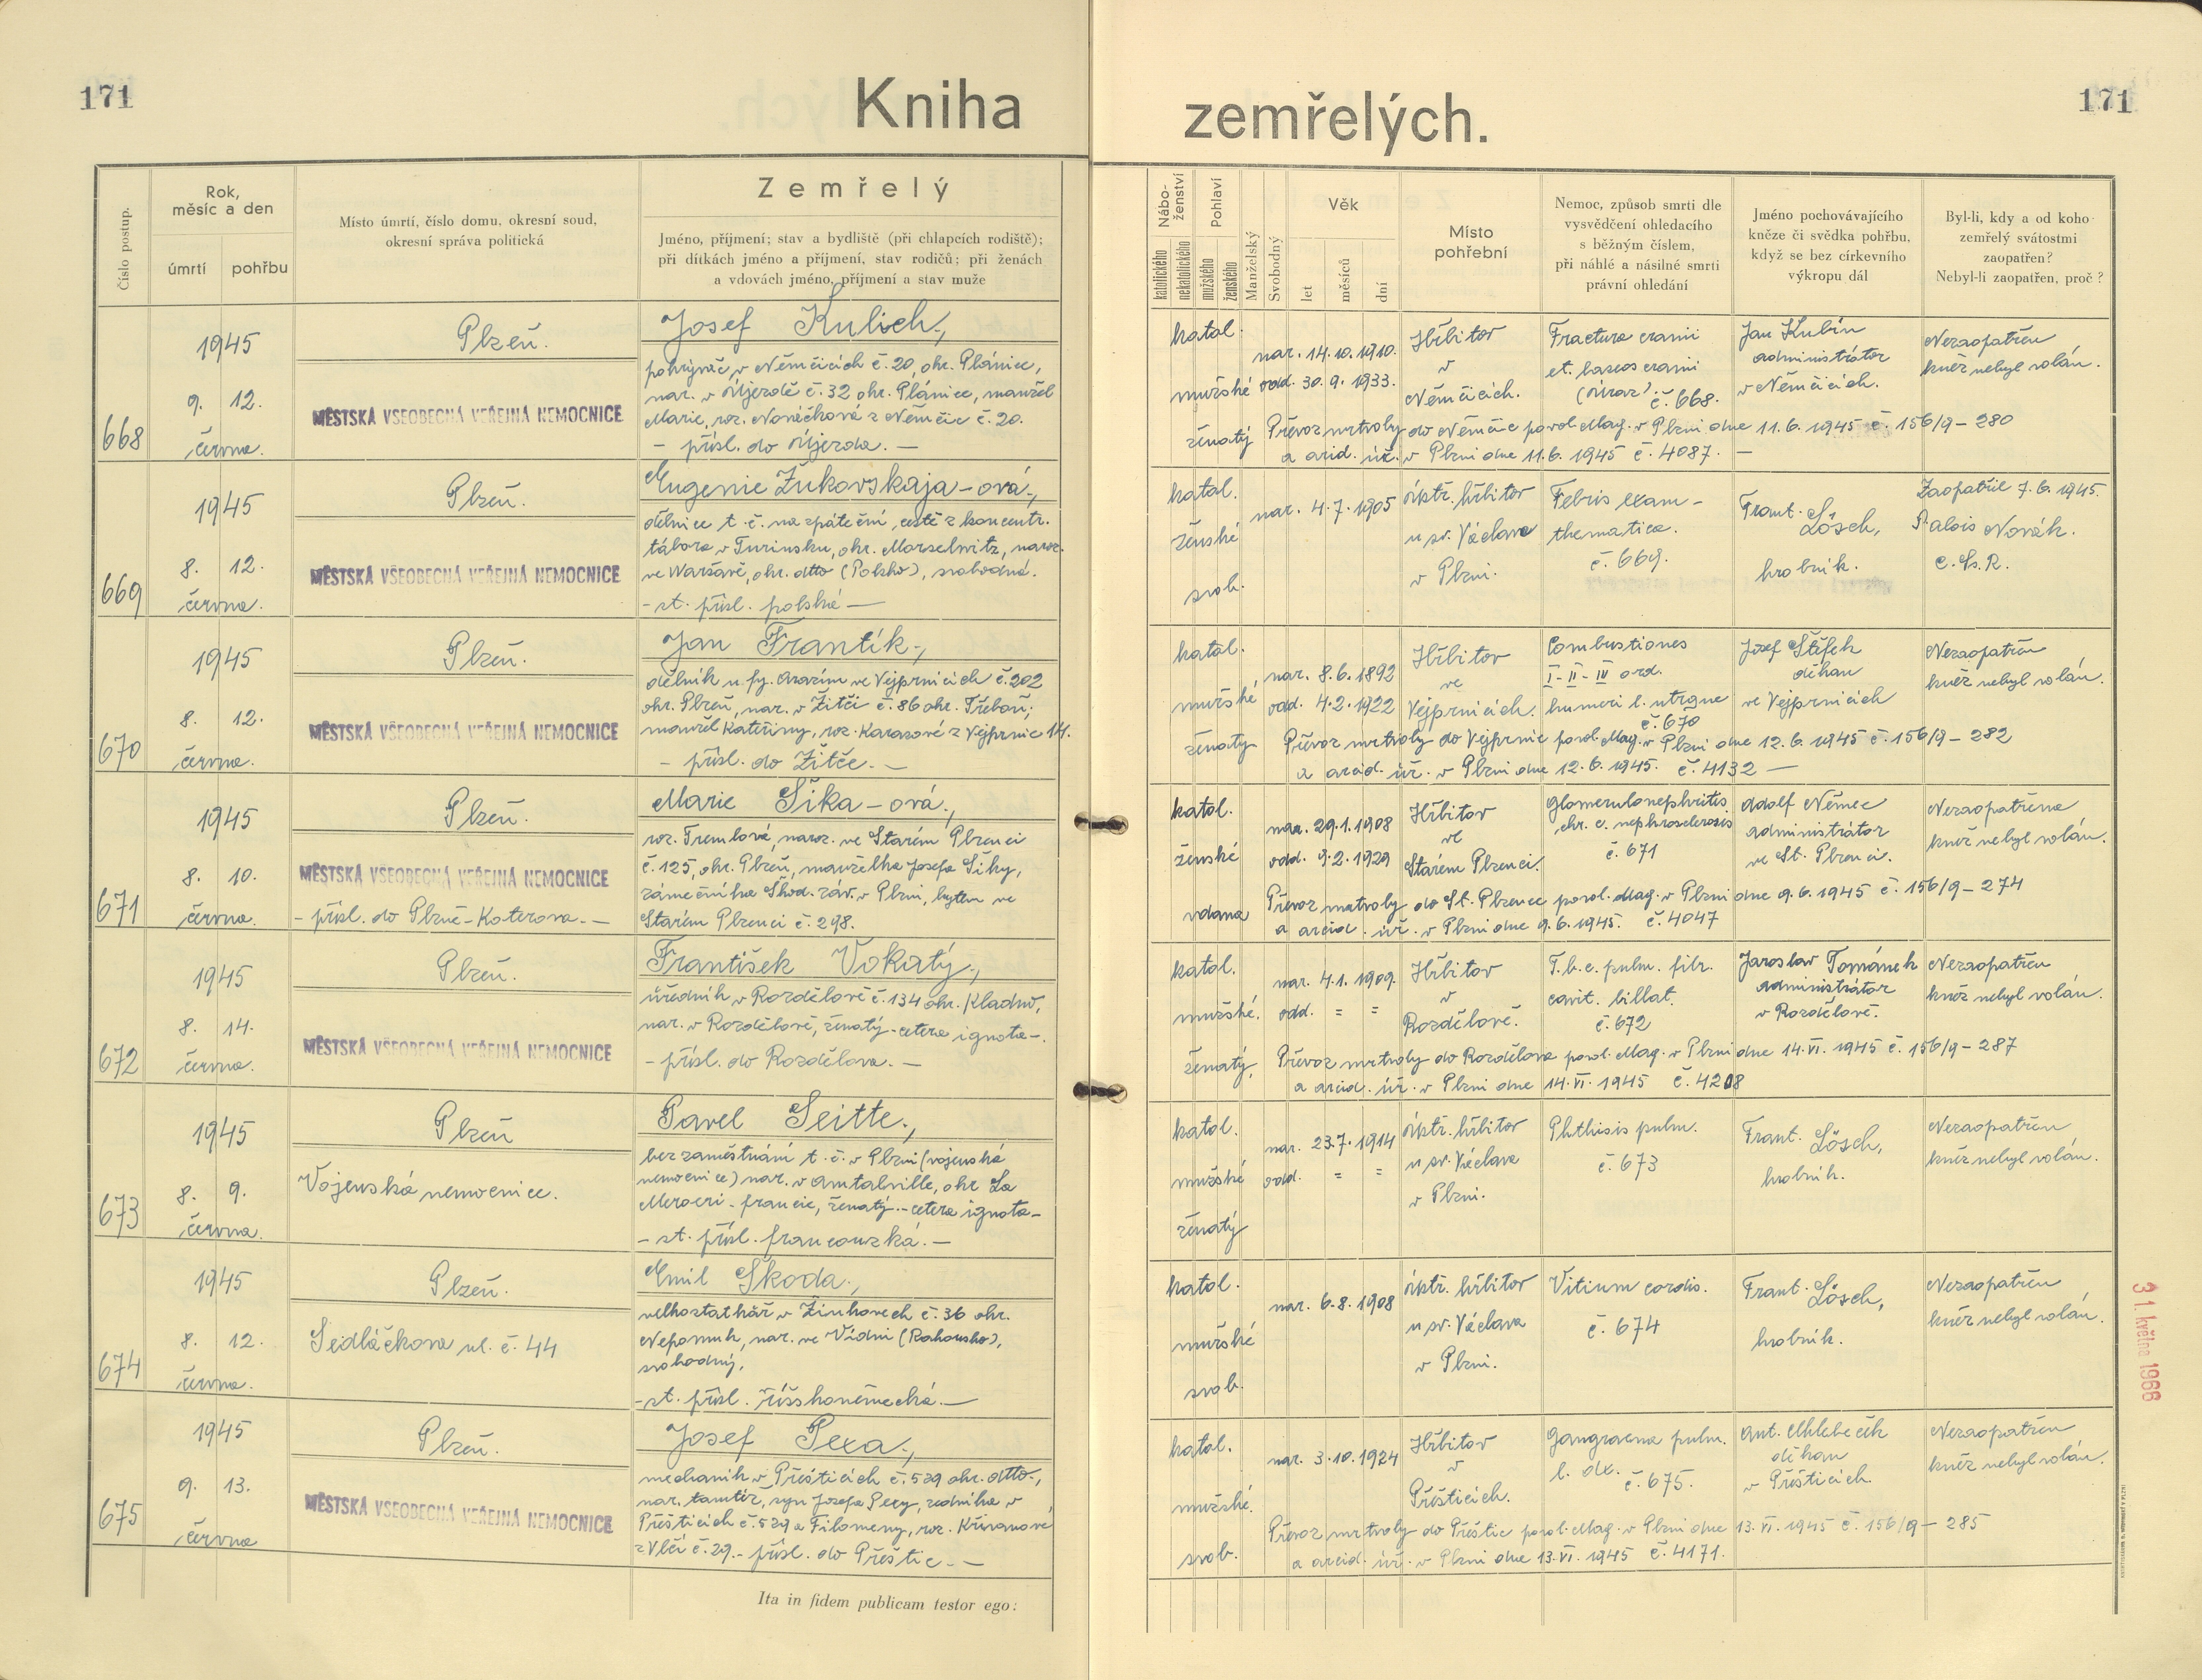 171
Kniha
zemřelých.
171
Číslo postup.
Rok,
měsíc a den
úmrtí
pohřbu
Místo úmrtí, číslo domu, okresní soud,
okresní správa politická
Zemřelý
Jméno, příjmení; stav a bydliště (při chlapcích rodiště);
při dítkách jméno a příjmení, stav rodičů; při ženách
a vdovách jméno, příjmení a stav muže
Nábo-
ženství
katolického
nekatolického
Pohlaví
mužského
ženského
Manželský
Svobodný
Věk
let
měsíců
dní
Místo
pohřební
Nemoc, způsob smrti dle
vysvědčení ohledacího
s běžným číslem,
při náhlé a násilné smrti
právní ohledání
Jméno pochovávajícího
kněze či svědka pohřbu,
když se bez církevního
výkropu dál
Byl-li, kdy a od koho
zemřelý svátostmi
zaopatřen?
Nebyl-li zaopatřen, proč?
668
1945
9. 12.
června.
Plzeň.
MĚSTSKÁ VŠEOBECNÁ VEŘEJNÁ NEMOCNICE
Josef Kulich,
pokrývač v Němčicích č. 20, okr. Plánice,
nar. v Újezdě č. 32 okr. Plánice, manžel
Marie, roz. Nováčkové z Němčic č. 20.
– přísl. do Újezda. –
katol.
mužské
ženatý
nar. 14.10.1910.
odd. 30.9.1933.
Hřbitov
v
Němčicích.
Fractura cranii
et. baseos cranii
(Úraz) č. 668.
Jan Kubín
administrátor
v Němčicích.
Nezaopatřen
kněz nebyl volán.
Převoz mrtvoly do Němčic povol. Mag. v Plzni dne 11.6.1945 č. 156/9 – 280
a arcid. úř. v Plzni dne 11.6.1945 č. 4087. –
669
1945
8. 12.
června.
Plzeň.
MĚSTSKÁ VŠEOBECNÁ VEŘEJNÁ NEMOCNICE
Eugenie Žukovskaja-ová,
dělnice t. č. na zpáteční cestě z koncentr.
tábora v Turinsku, okr. Marselwitz, naroz.
ve Waršavě, okr. dtto (Polsko), svobodná.
– st. přísl. polské –
katol.
ženské
svob.
nar. 4.7.1905
ústř. hřbitov
u sv. Václava
v Plzni.
Febris exam-
thematica.
č. 669.
Frant. Lösch,
hrobník.
Zaopatřil 7.6.1945.
P. Alois Novák.
C.Ss.R.
670
1945
8. 12.
června.
Plzeň.
MĚSTSKÁ VŠEOBECNÁ VEŘEJNÁ NEMOCNICE
Jan Frantík,
dělník u fy. Arazim ve Vejprnicích č. 202
okr. Plzeň, nar. v Žitči č. 86 okr. Třeboň;
manžel Kateřiny, roz. Karasové z Vejprnic 14.
– přísl. do Žitče. –
katol.
mužské
ženatý
nar. 8.6.1892
odd. 4.2.1922
Hřbitov
ve
Vejprnicích.
Combustiones
I - II - IV ord.
humeri l. utrque
č. 670
Josef Štífek
děkan
ve Vejprnicích
Nezaopatřen
kněz nebyl volán.
Převoz mrtvoly do Vejprnic povol. Mag. v Plzni dne 12.6.1945 č. 156/9 – 282
a arcid. úř. v Plzni dne 12.6.1945. č. 4132 –
671
1945
8. 10.
června.
Plzeň.
MĚSTSKÁ VŠEOBECNÁ VEŘEJNÁ NEMOCNICE
– přísl. do Plzně-Koterova. –
Marie Šika-ová,
roz. Tremlová, naroz. ve Starém Plzenci
č. 125, okr. Plzeň, manželka Josefa Šiky,
zámečníka Škod. záv. v Plzni, bytem ve
Starém Plzenci č. 298.
katol.
ženské
vdaná
nar. 29.1.1908
odd. 9.2.1929
Hřbitov
ve
Starém Plzenci.
Glomerulonephritis
chr. c. nephrosclerosis
č. 671
Adolf Němec
administrátor
ve St. Plzenci.
Nezaopatřena
kněz nebyl volán.
Převoz mrtvoly do St. Plzence povol. Mag. v Plzni dne 9.6.1945 č. 156/9 – 274
a arcid. úř. v Plzni dne 9.6.1945. č. 4047
672
1945
8. 14.
června.
Plzeň.
MĚSTSKÁ VŠEOBECNÁ VEŘEJNÁ NEMOCNICE
František Vokatý,
úředník v Rozdělově č. 134 okr. Kladno,
nar. v Rozdělově, ženatý – cetera ignota –.
– přísl. do Rozdělova. –
katol.
mužské.
ženatý,
nar. 4.1.1909.
odd. = =
Hřbitov
v
Rozdělově.
T.b.c. pulm. fibr.
cavit. billat.
č. 672
Jaroslav Tománek
administrátor
v Rozdělově.
Nezaopatřen
kněz nebyl volán.
Převoz mrtvoly do Rozdělova povol. Mag. v Plzni dne 14.VI.1945 č. 156/9 – 287
a arcid. úř. v Plzni dne 14.VI.1945 č. 4208
673
1945
8. 9.
června.
Plzeň
Vojenská nemocnice.
Pavel Seitte,
bez zaměstnání t. č. v Plzni (vojenská
nemocnice) nar. v Amtalville, okr La
Meroeri – francie, ženatý – cetera ignota –
– st. přísl. francouzská. –
katol.
mužské
ženatý
nar. 23.7.1914
odd. = =
ústř. hřbitov
u sv. Václava
v Plzni.
Phthisis pulm.
č. 673
Frant. Lösch,
hrobník.
Nezaopatřen
kněz nebyl volán.
674
1945
8. 12.
června.
Plzeň.
Sedláčkova ul. č. 44
Emil Škoda,
velkostatkář v Žinkovech č. 36 okr.
Nepomuk, nar. ve Vídni (Rakousko),
svobodný,
– st. přísl. říšskoněmecká. –
katol.
mužské
svob.
nar. 6.8.1908
ústř. hřbitov
u sv. Václava
v Plzni.
Vitium cordis.
č. 674
Frant. Lösch,
hrobník.
Nezaopatřen
kněz nebyl volán.
31. května 1966
675
1945
9. 13.
června
Plzeň.
MĚSTSKÁ VŠEOBECNÁ VEŘEJNÁ NEMOCNICE
Josef Pexa,
mechanik v Přešticích č. 529 okr. dtto.,
nar. tamtéž, syn Josefa Pexy, zedníka v
Přešticích č. 529 a Filomeny, roz. Křivanové
z Vlčí č. 29. – přísl. do Přeštic –
katol.
mužské.
svob.
nar. 3.10.1924
Hřbitov
v
Přešticích.
Gangraena pulm.
l. dx.
č. 675.
Ant. Chlebečík
děkan
v Přešticích.
Nezaopatřen
kněz nebyl volán.
Převoz mrtvoly do Přeštic povol. Mag. v Plzni dne 13.VI.1945 č. 156/9 – 285
a arcid. úř. v Plzni dne 13.VI.1945 č. 4171.
Ita in fidem publicam testor ego: